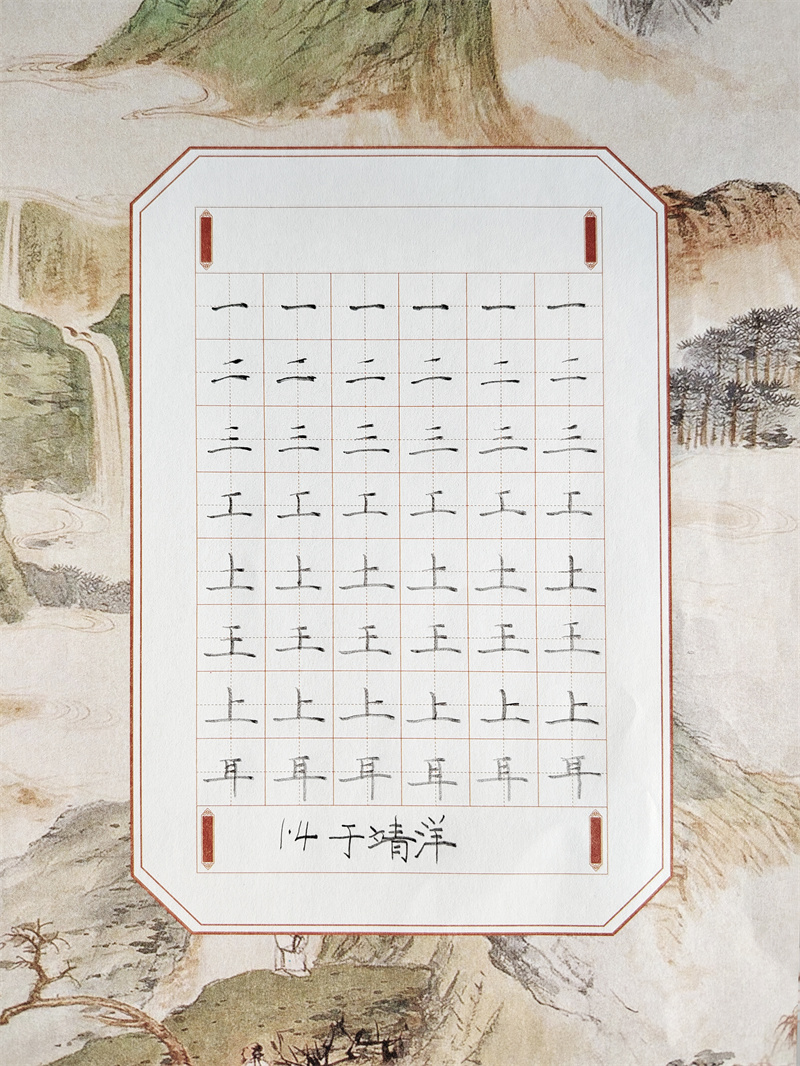 一 一 一 一 一 一
二 二 二 二 二 二
三 三 三 三 三 三
工 工 工 工 工 工
土 土 土 土 土 土
王 王 王 王 王 王
上 上 上 上 上 上
耳 耳 耳 耳 耳 耳
1.4 于靖洋